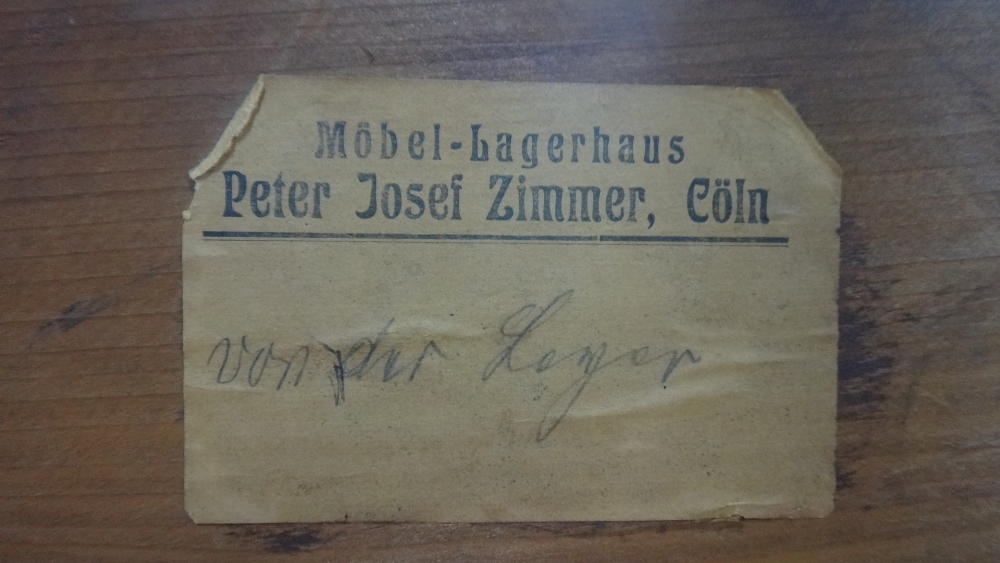 Möbel-Lagerhaus
Peter Josef Zimmer, Cöln
von der Leyer